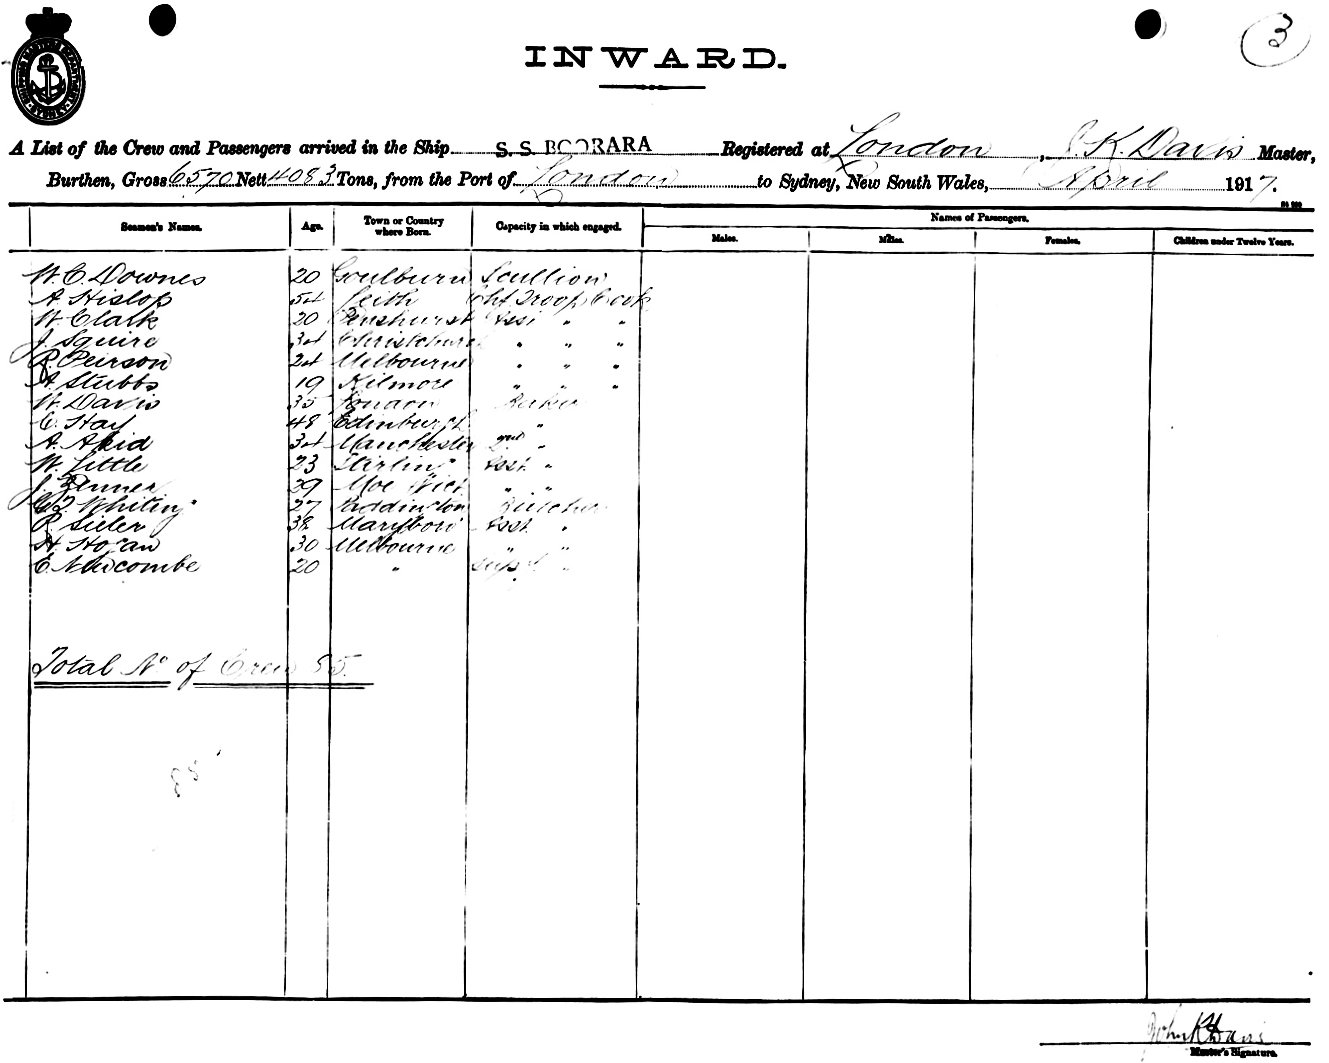 3
INWARD.
A List of the Crew and Passengers arrived in the Ship S. S. BOORARA Registered at London, K. Davis Master,
Burthen, Gross 6570 Nett 4083 Tons, from the Port of London to Sydney, New South Wales, April 1917.
Seamen's Names. Age. Town or Country where Born. Capacity in which engaged. Names of Passengers.
Males. Males. Females. Children under Twelve Years.
W. C. Downes 20 Goulburn Scullion
A. Hislop 54 Leith Chf Troop Cook
W. Clark 20 Penshurst Asst " "
J. Squire 34 Christchurch " " "
R. Peirson 24 Melbourne " " "
A. Stubbs 19 Kilmore " " "
W. Davis 35 London Baker
C. Hay 48 Edinburgh "
A. Akid 34 Manchester 2nd "
W. Little 23 Stirling Asst "
J. 29 " "
Whiting 27 Paddington Butcher
P. Sieler 38 Maryboro' Asst "
H. Hogan 30 Melbourne " "
E. Newcombe 20 " "
Total No of Crew 85.
John K Davis
Master's Signature.